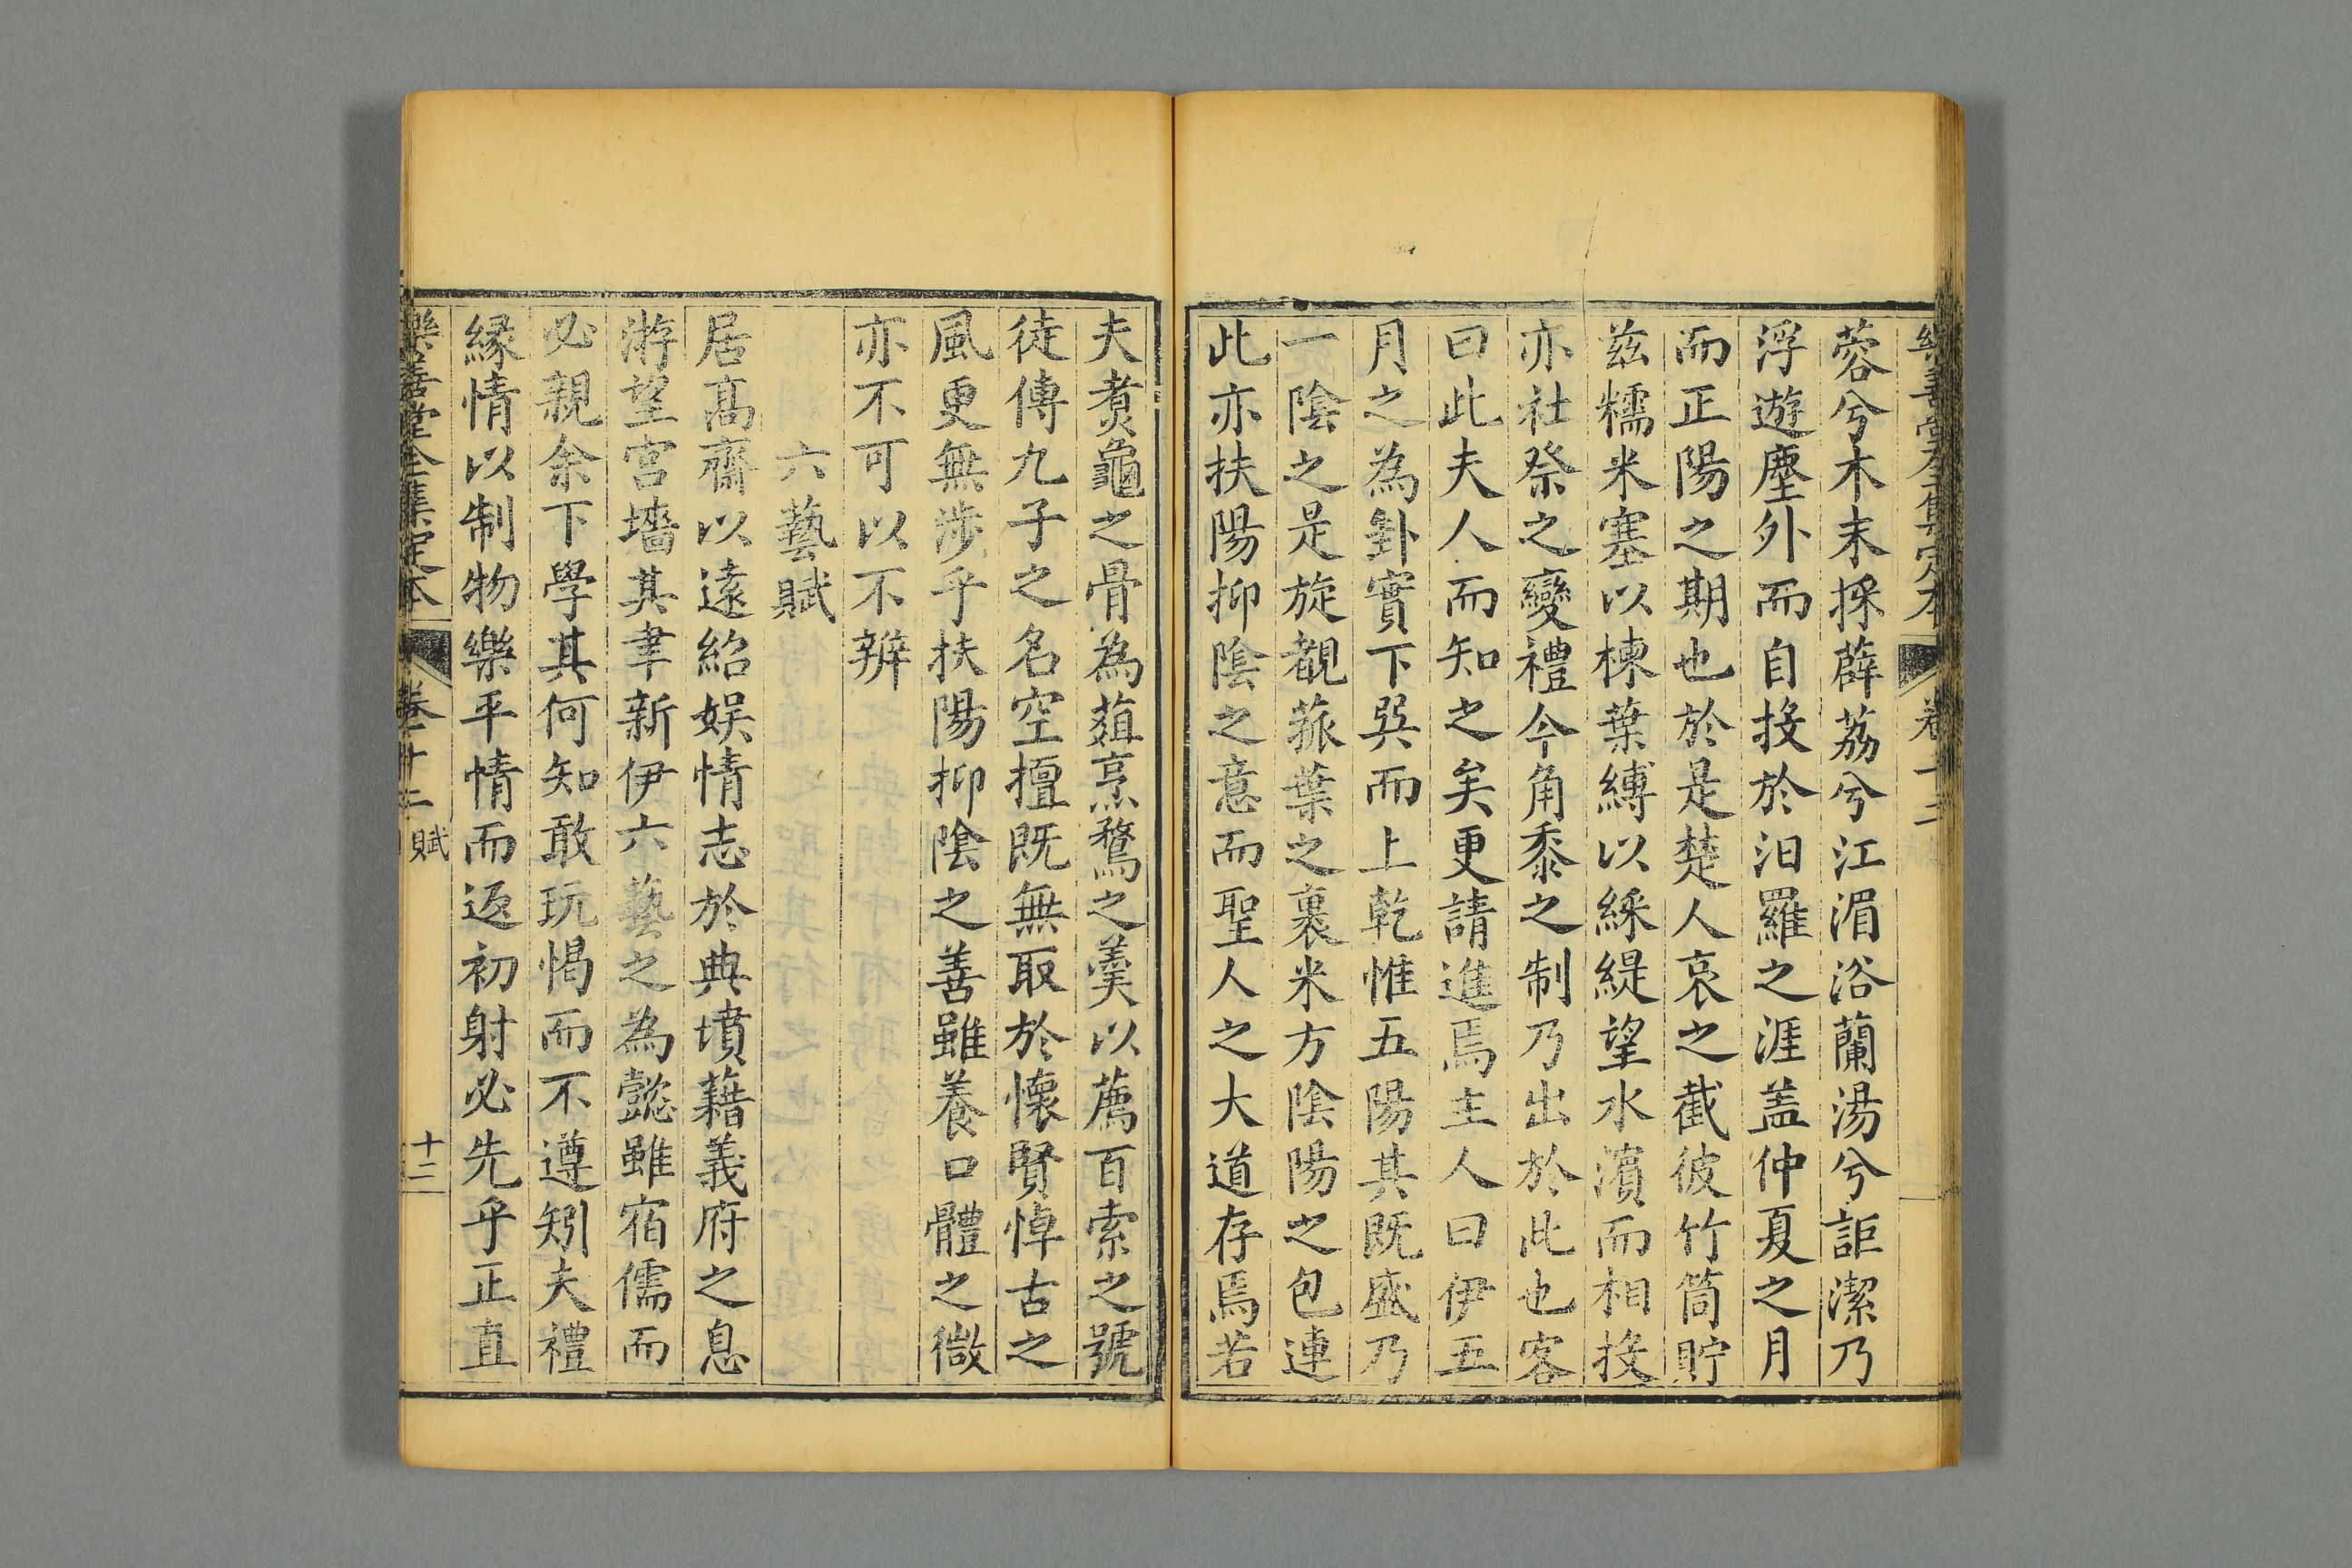 樂善堂全集定本 卷十二
蓉兮木末採薜荔兮江湄浴蘭湯兮詎潔乃
浮遊塵外而自投於汨羅之涯盖仲夏之月
而正陽之期也於是楚人哀之截彼竹筒貯
兹糯米塞以楝葉縛以綵緹望水濱而相投
亦社祭之變禮今角黍之制乃出於此也客
曰此夫人而知之矣更請進焉主人曰伊五
月之為卦實下巽而上乾惟五陽其既盛乃
一陰之是旋覩菰葉之裹米方陰陽之包連
此亦扶陽抑陰之意而聖人之大道存焉若
夫煮龜之骨為葅烹鶩之羹以薦百索之號
徒傳九子之名空擅既無取於懷賢悼古之
風更無涉乎扶陽抑陰之善雖養口體之微
亦不可以不辨
六藝賦
居髙齋以遠紹娱情志於典墳藉義府之息
游望宫墻其聿新伊六藝之為懿雖宿儒而
必親余下學其何知敢玩愒而不遵矧夫禮
縁情以制物樂平情而返初射必先乎正直
樂善堂全集定本 卷十二 賦 十二